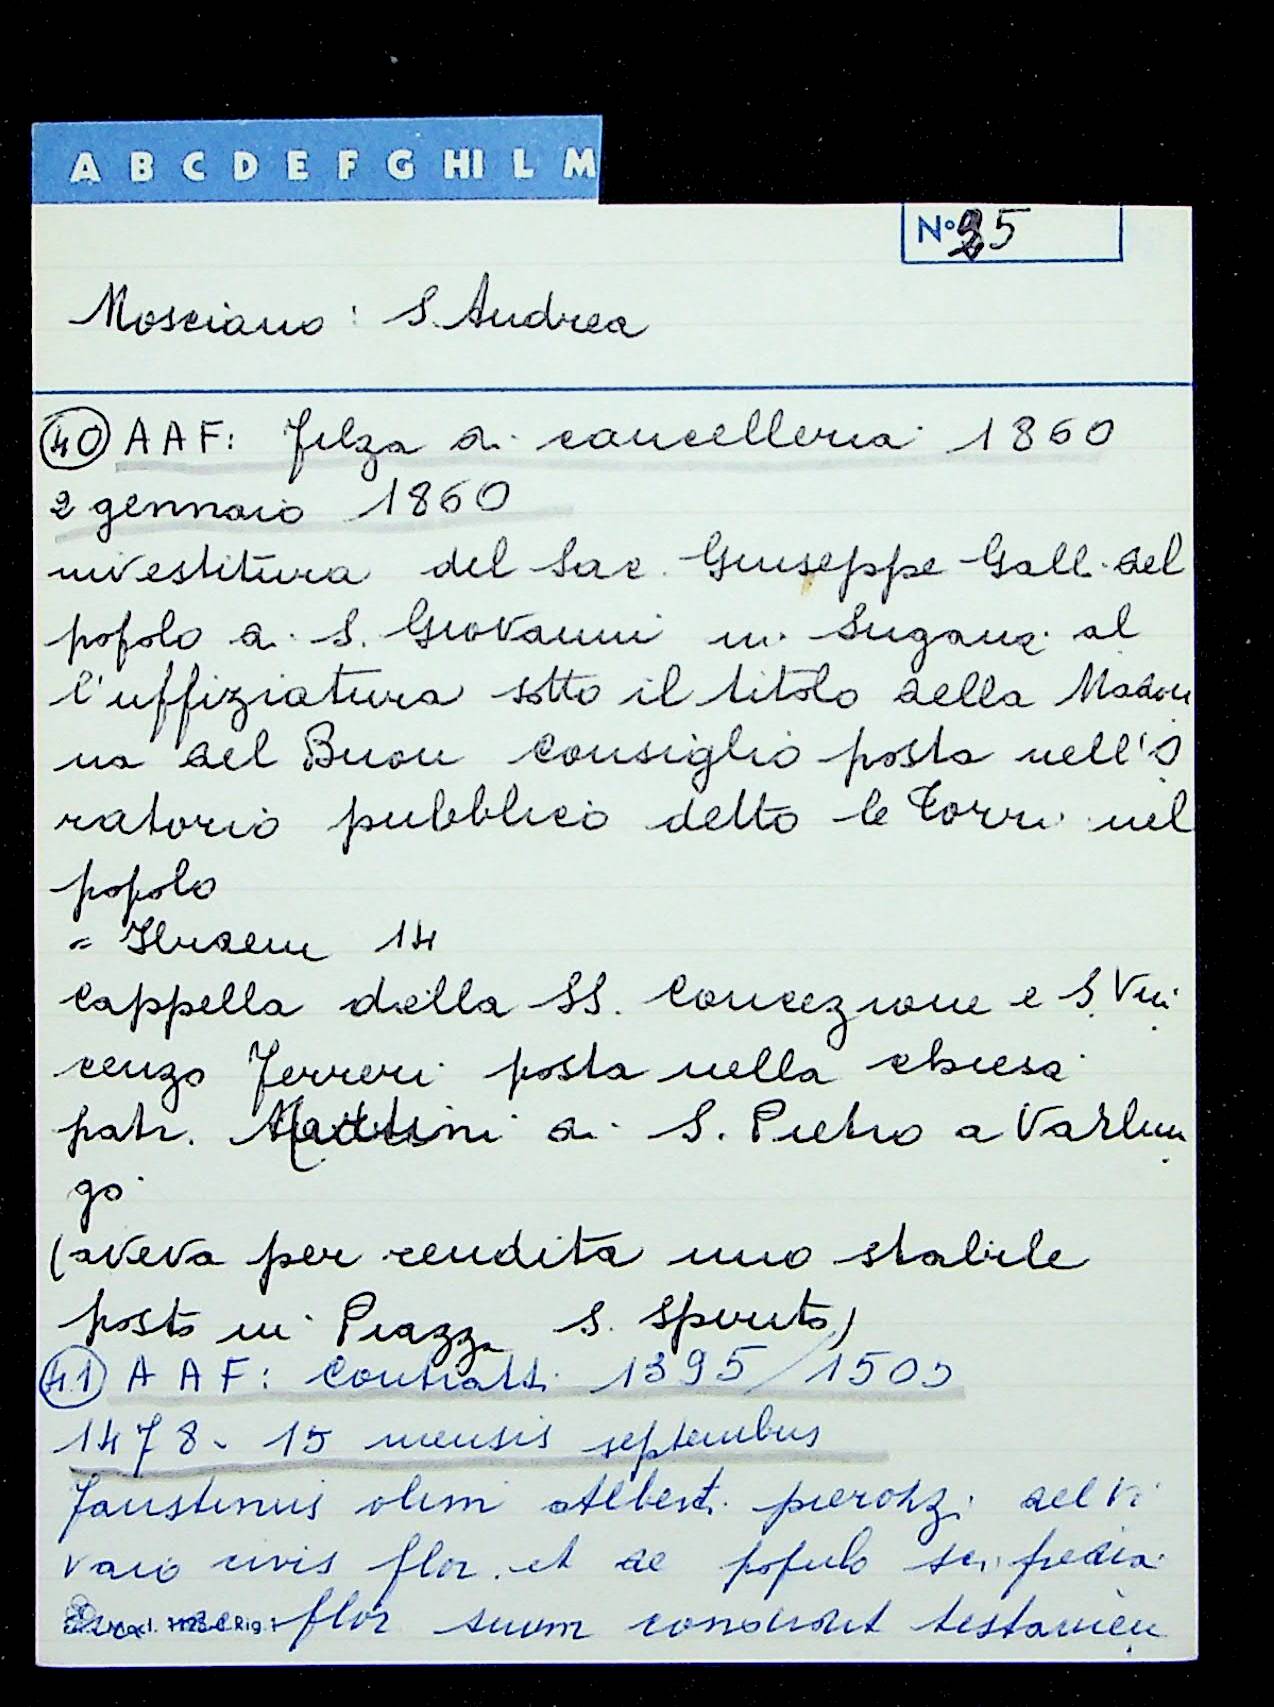 A B C D E F G HI L M
N° 25
Mosciano: S. Andrea
40 AAF: Filza di cancelleria 1860
2 gennaio 1860
investitura del Sac. Giuseppe Galli del
popolo di S. Giovanni in Sugana al
l'uffiziatura sotto il titolo della Madon
na del Buon Consiglio posta nell'O
ratorio pubblico detto le Torri nel
popolo
= Ibidem 14
Cappella della SS. Concezione e S. Vin
cenzo Ferreri posta nella chiesa
patr. di S. Pietro a Varlun
go
(aveva per rendita uno stabile
posto in Piazza S. Spirito)
41 AAF: Contratti 1395/1505
1478 - 15 mensis septembris
Faustinus olim Alberti pierozzi del vi
vaio civis flor. et de populo sci. fredia
ni de flor suum condidit testamen